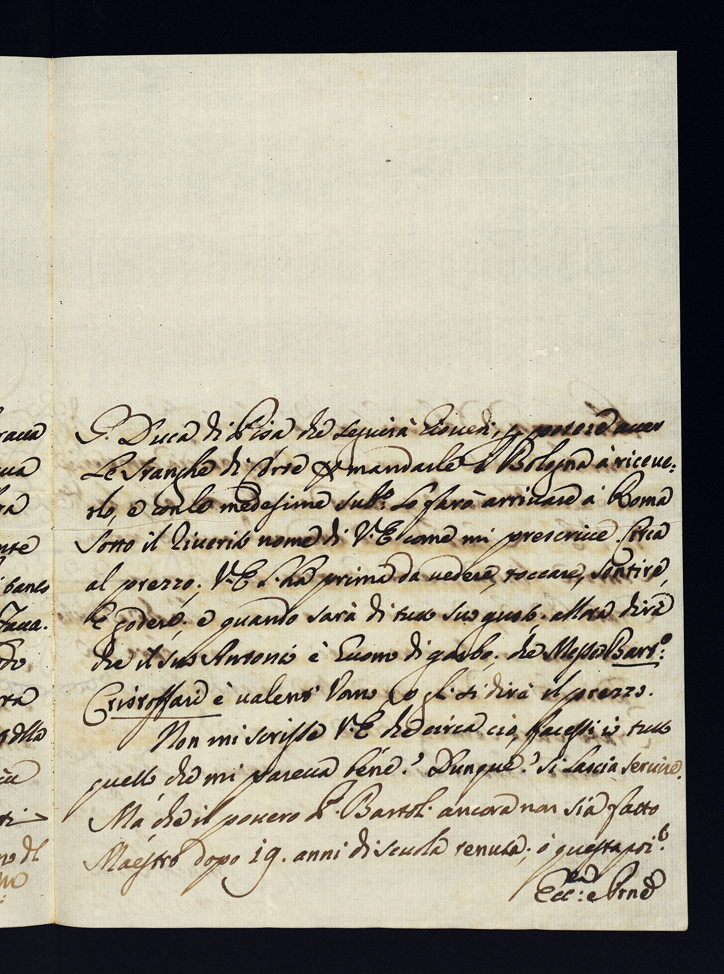 raua
G. Duca di Pisa che seguirà Giovedi, p. potere aver
ua
Le stanghe di d'orse p mandarle à Bologna à riceve:
ra
rlo, e con le medesime sub.º lo farò arrivare à Roma
nte
sotto il riverito nome di V.E come mi prescrive. Circa
banco
al prezzo; V.E l'hà prima da vedere, toccare, sentire,
Faua.
e godere, e quando sarà di tutto suo gusto, allora dirà
do
che il suo Antonio è Huomo di garbo, che Messer Bart:º
rta
Cristoffari è valent' Uomo, Io gli si dirà il prezzo.
ello
Non mi scrisse V.E che circa ciò, facessi io tutto
quello che mi pareva bene? Dunque? si lascia servire.
rti
Mà che il povero Bartoli ancora non sia fatto
no di
Maestro dopo 19. anni di scuola tenuta; ò questa poi!
Ecc: e Prne